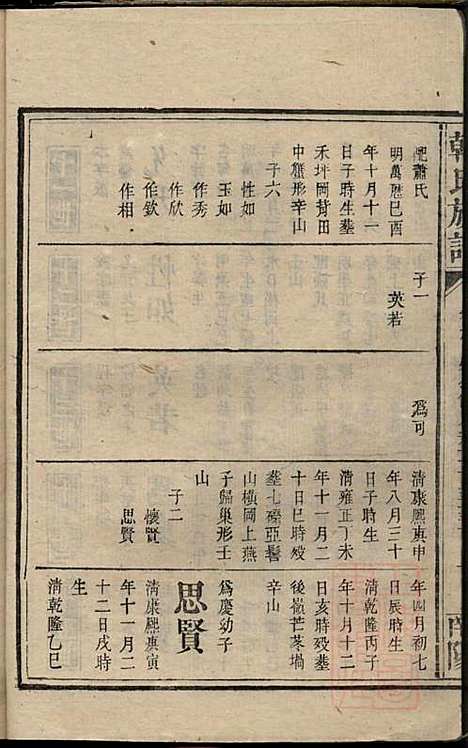 韓氏族譜
南陽
配蕭氏
明萬曆己酉
年十月十一
日子時生墓
禾坪岡背田
中蟹形辛山
子六
性如
玉如
作秀
作欣
作欽
作相
子一
英若
為可
清康熙庚申
年八月三十
日子時生
清雍正丁未
年十一月二
十日巳時歿
墓七磜亞髻
山橫岡上燕
子歸巢形壬
山
子二
懷賢
思賢
年四月初七
日辰時生
清乾隆丙子
年十月十二
日亥時歿墓
後嶺芒茗塢
辛山
為慶幼子
思賢
清康熙庚寅
年十一月二
十二日戌時
生
清乾隆乙巳